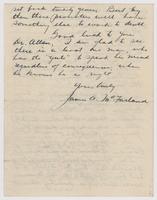 set back twenty years. But by
then there
something else to
Good luck to you
Dr. Allen, I am glad to see
there is at least one man who
has the "guts" to speak his mind
regardless of consequences, when
he knows he is right
Yours truly
James A. McFarland